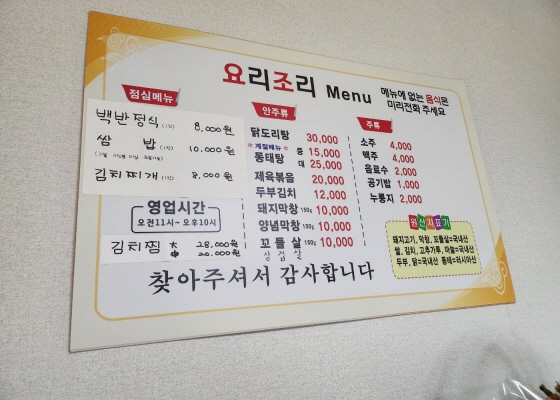 요리조리 Menu
메뉴에 없는 음식은
미리전화 주세요
점심메뉴
백반정식 (1인) 8,000원
쌈 밥 (1인) 10,000원
김치찌개 (1인) 8,000원
영업시간
오전11시~ 오후10시
김치찜 大 28,000원
中 20,000원
안주류
닭도리탕 30,000
*계절메뉴* 중 15,000
동태탕 대 25,000
제육볶음 20,000
두부김치 12,000
돼지막창 150g 10,000
양념막창 150g 10,000
꼬들살 150g 10,000
삼겹살
주류
소주 4,000
맥주 4,000
음료수 2,000
공기밥 1,000
누룽지 2,000
원산지표기
돼지고기, 막창, 꼬들살=국내산
쌀, 김치, 고추가루, 마늘=국내산
두부, 닭=국내산 동태=러시아산
찾아주셔서 감사합니다